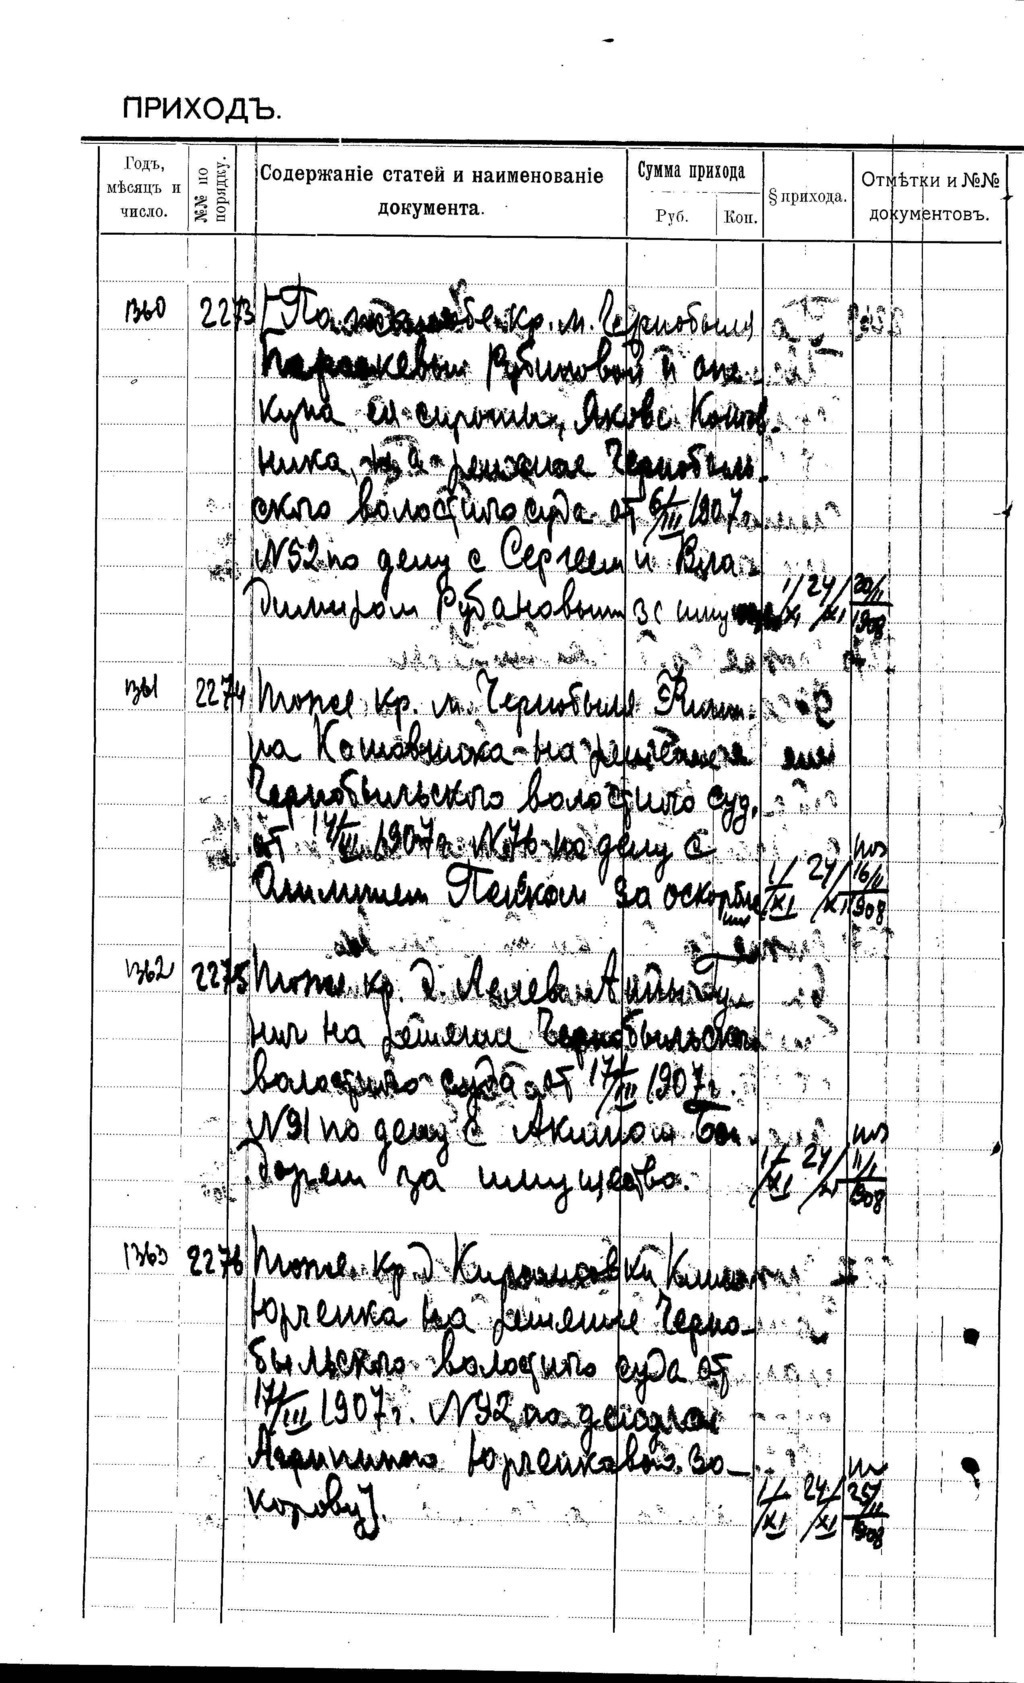 ПРИХОДЪ.
Годъ, мѣсяцъ и число.
№№ по порядку.
Содержаніе статей и наименованіе документа.
Сумма прихода
Руб.
Коп.
§ прихода.
Отмѣтки и №№ документовъ.
1360 2273 [По жалобе кр. м. Чернобыля
Параскевы Рубановой и опе-
куна ея сироты, Якова Котов-
ника, на решение Чернобыль-
ского волостного суда от 6/III 1907 г.
N52 по делу с Сергеем и Вла-
димиром Рубановыми за
1/XI 24/XI 20/II 1908
1361 2274 тоже кр. м. Чернобыля
на Котовника на решение
Чернобыльского волостного суд.
от 17/III 1907 г. N76 по делу с
за оскорбле
ние
1/XI 24/XI 16/II 908
1362 2275 тоже кр. д.
на решение Чернобыльского
волостного суда от 17/III 1907 г.
N91 по делу с Акимом Бон
дарем за имущество.
1/XI 24/XI 11/I 908
1363 2276 тоже кр. д
Юрченка на решение Черно-
быльского волостного суда от
17/III 1907 г. N92 по делу с
Агрипиною Юрченковою за
корову].
1/XI 24/XI 25/II 1908